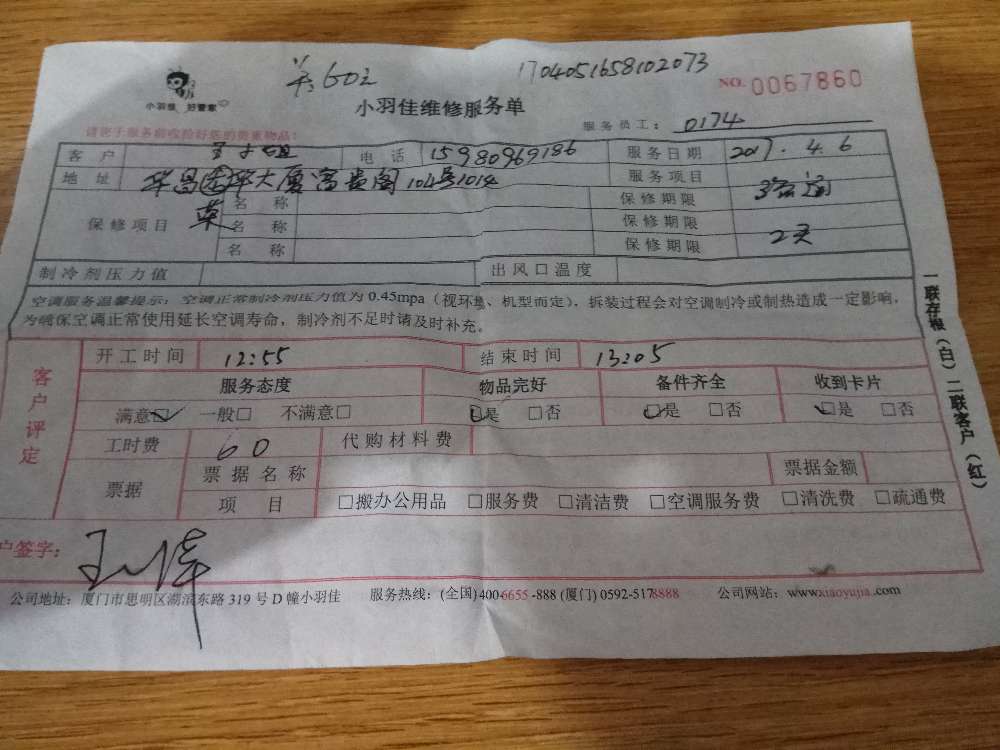 羊:60元 1704051658102073
小羽佳 好管家 NO. 0067860
小羽佳维修服务单
请您于服务前收捡好您的贵重物品! 服务员工: 0174
客户 王小姐 电话 15980969186 服务日期 2017.4.6
地址 华昌 大厦富贵阁104号101 服务项目
保修项目 名称 保修期限
名称 保修期限
名称 保修期限 2天
制冷剂压力值 出风口温度
空调服务温馨提示: 空调正常制冷剂压力值为0.45mpa(视环境、机型而定),拆装过程会对空调制冷或制热造成一定影响,
为确保空调正常使用延长空调寿命,制冷剂不足时请及时补充。
开工时间 12:55 结束时间 13:05
客户评定
服务态度 物品完好 备件齐全 收到卡片
满意☑ 一般□ 不满意□ ☑是 □否 ☑是 □否 ☑是 □否
工时费 60 代购材料费
票据 票据名称 票据金额
项目 □搬办公用品 □服务费 □清洁费 □空调服务费 □清洗费 □疏通费
户签字:
公司地址: 厦门市思明区湖滨东路319号D幢小羽佳 服务热线: (全国)400-6655-888 (厦门) 0592-5178888 公司网站: www.xiaoyujia.com
一联存根(白)二联客户(红)